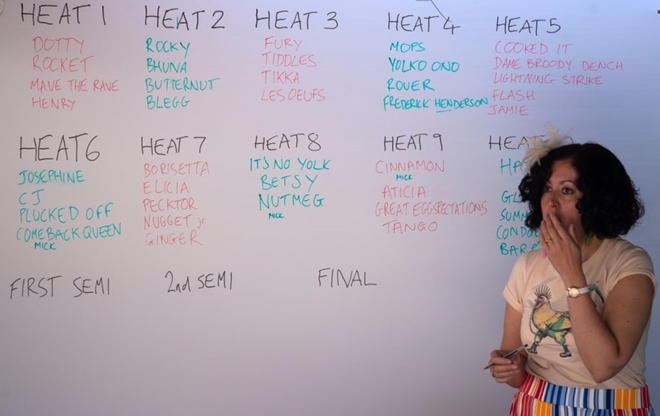 HEAT 1
DOTTY
ROCKET
MAVE THE RAVE
HENRY
HEAT 2
ROCKY
BHUNA
BUTTERNUT
BLEGG
HEAT 3
FURY
TIDDLES
TIKKA
LES OEUFS
HEAT 4
MOPS
YOLKO ONO
ROVER
FREDERICK HENDERSON
HEAT 5
COOKED IT
DAME BROODY DENCH
LIGHTNING STRIKE
FLASH
JAMIE
HEAT 6
JOSEPHINE
CJ
PLUCKED OFF
COMEBACK QUEEN
MICK
HEAT 7
BORISETTA
ELICIA
PECKTOR
NUGGET Jr
GINGER
HEAT 8
IT'S NO YOLK
BETSY
NUTMEG
MICK
HEAT 9
CINNAMON
MICK
ATICIA
GREAT EGGSPECTATIONS
TANGO
FIRST SEMI
2nd SEMI
FINAL